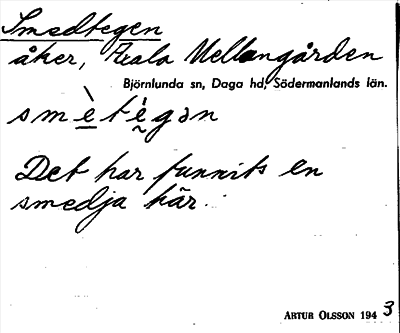 Smedtegen
åker, Axala Mellangården
Björnlunda sn, Daga hd, Södermanlands län.
smè̱tḛ́gən
Det har funnits en
smedja här.
ARTUR OLSSON 1943